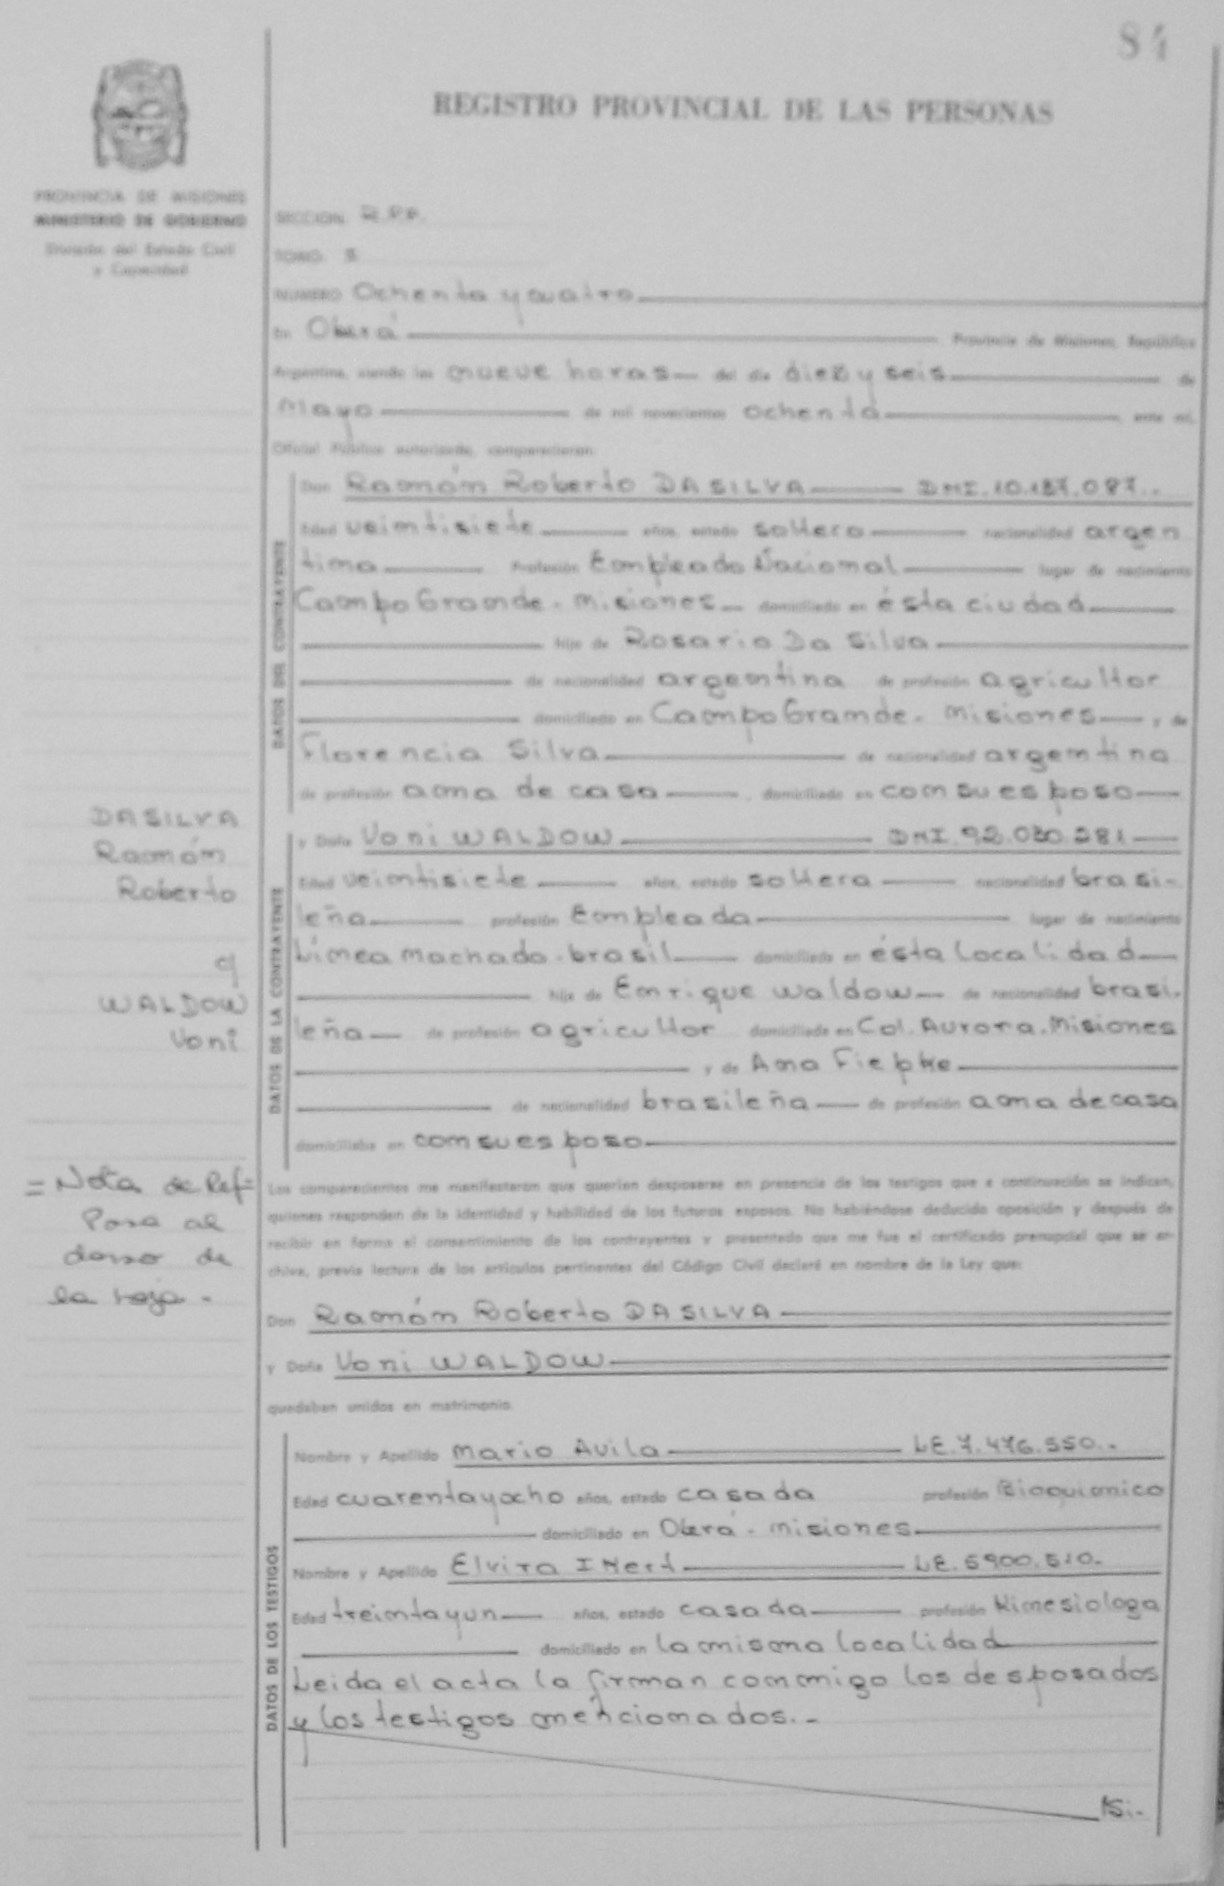 84
REGISTRO PROVINCIAL DE LAS PERSONAS
PROVINCIA DE MISIONES
MINISTERIO DE GOBIERNO
División del Estado Civil
y Capacidad
SECCION:
TOMO:
NUMERO Ochenta y cuatro
En Oberá Provincia de Misiones, República
Argentina, siendo las nueve horas del día diez y seis de
Mayo de mil novecientos ochenta, ante mí,
Oficial Público autorizado, comparecieron:
DATOS DEL CONTRAYENTE
Don Ramón Roberto DASILVA DNI. 10.187.087.-
Edad veintisiete años, estado soltero nacionalidad argen
tino Profesión Empleado Nacional lugar de nacimiento
Campo Grande. Misiones domiciliado en ésta ciudad
hijo de Rosario Da Silva
de nacionalidad argentina de profesión agricultor
domiciliado en Campo Grande. Misiones, y de
Florencia Silva de nacionalidad argentina
de profesión ama de casa, domiciliado en con su esposo
DASILVA
Ramón
Roberto
c/
WALDOW
Voni
DATOS DE LA CONTRAYENTE
y Doña Voni WALDOW DNI. 92.030.281
Edad veintisiete años, estado soltera nacionalidad brasi-
leña profesión Empleada lugar de nacimiento
Línea Machado. brasil domiciliada en ésta localidad
hija de Enrique Waldow de nacionalidad brasi-
leña de profesión agricultor domiciliado en Col. Aurora. Misiones
y de Ana Fiepke
de nacionalidad brasileña de profesión ama de casa
domiciliaba en con su esposo
= Nota de Ref=
Pasa al
dorso de
la hoja.-
Los comparecientes me manifestaron que querían desposarse en presencia de los testigos que a continuación se indican,
quienes responden de la identidad y habilidad de los futuros esposos. No habiéndose deducido oposición y después de
recibir en forma el consentimiento de los contrayentes y presentado que me fue el certificado prenupcial que se ar-
chiva, previa lectura de los artículos pertinentes del Código Civil declaré en nombre de la Ley que:
Don Ramón Roberto DASILVA
y Doña Voni WALDOW
quedaban unidos en matrimonio.
DATOS DE LOS TESTIGOS
Nombre y Apellido Mario Avila LE. 7.476.550.-
Edad cuarenta y ocho años, estado casada profesión Bioquimico
domiciliado en Oberá. Misiones
Nombre y Apellido Elvira IHert LE. 5900.510.
Edad treinta y un años, estado casada profesión Kinesiologa
domiciliado en la misma localidad
Leida el acta la firman conmigo los desposados
y los testigos mencionados.-